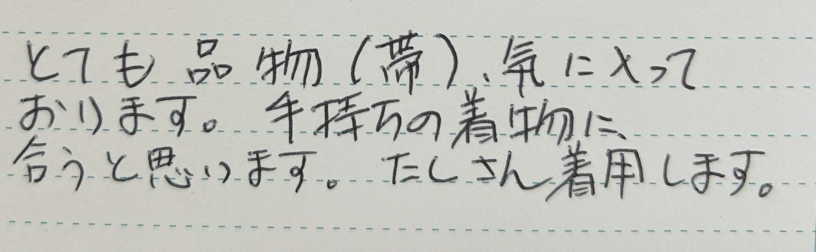 とても品物(帯)、気に入って
おります。手持ちの着物に、
合うと思います。たくさん着用します。